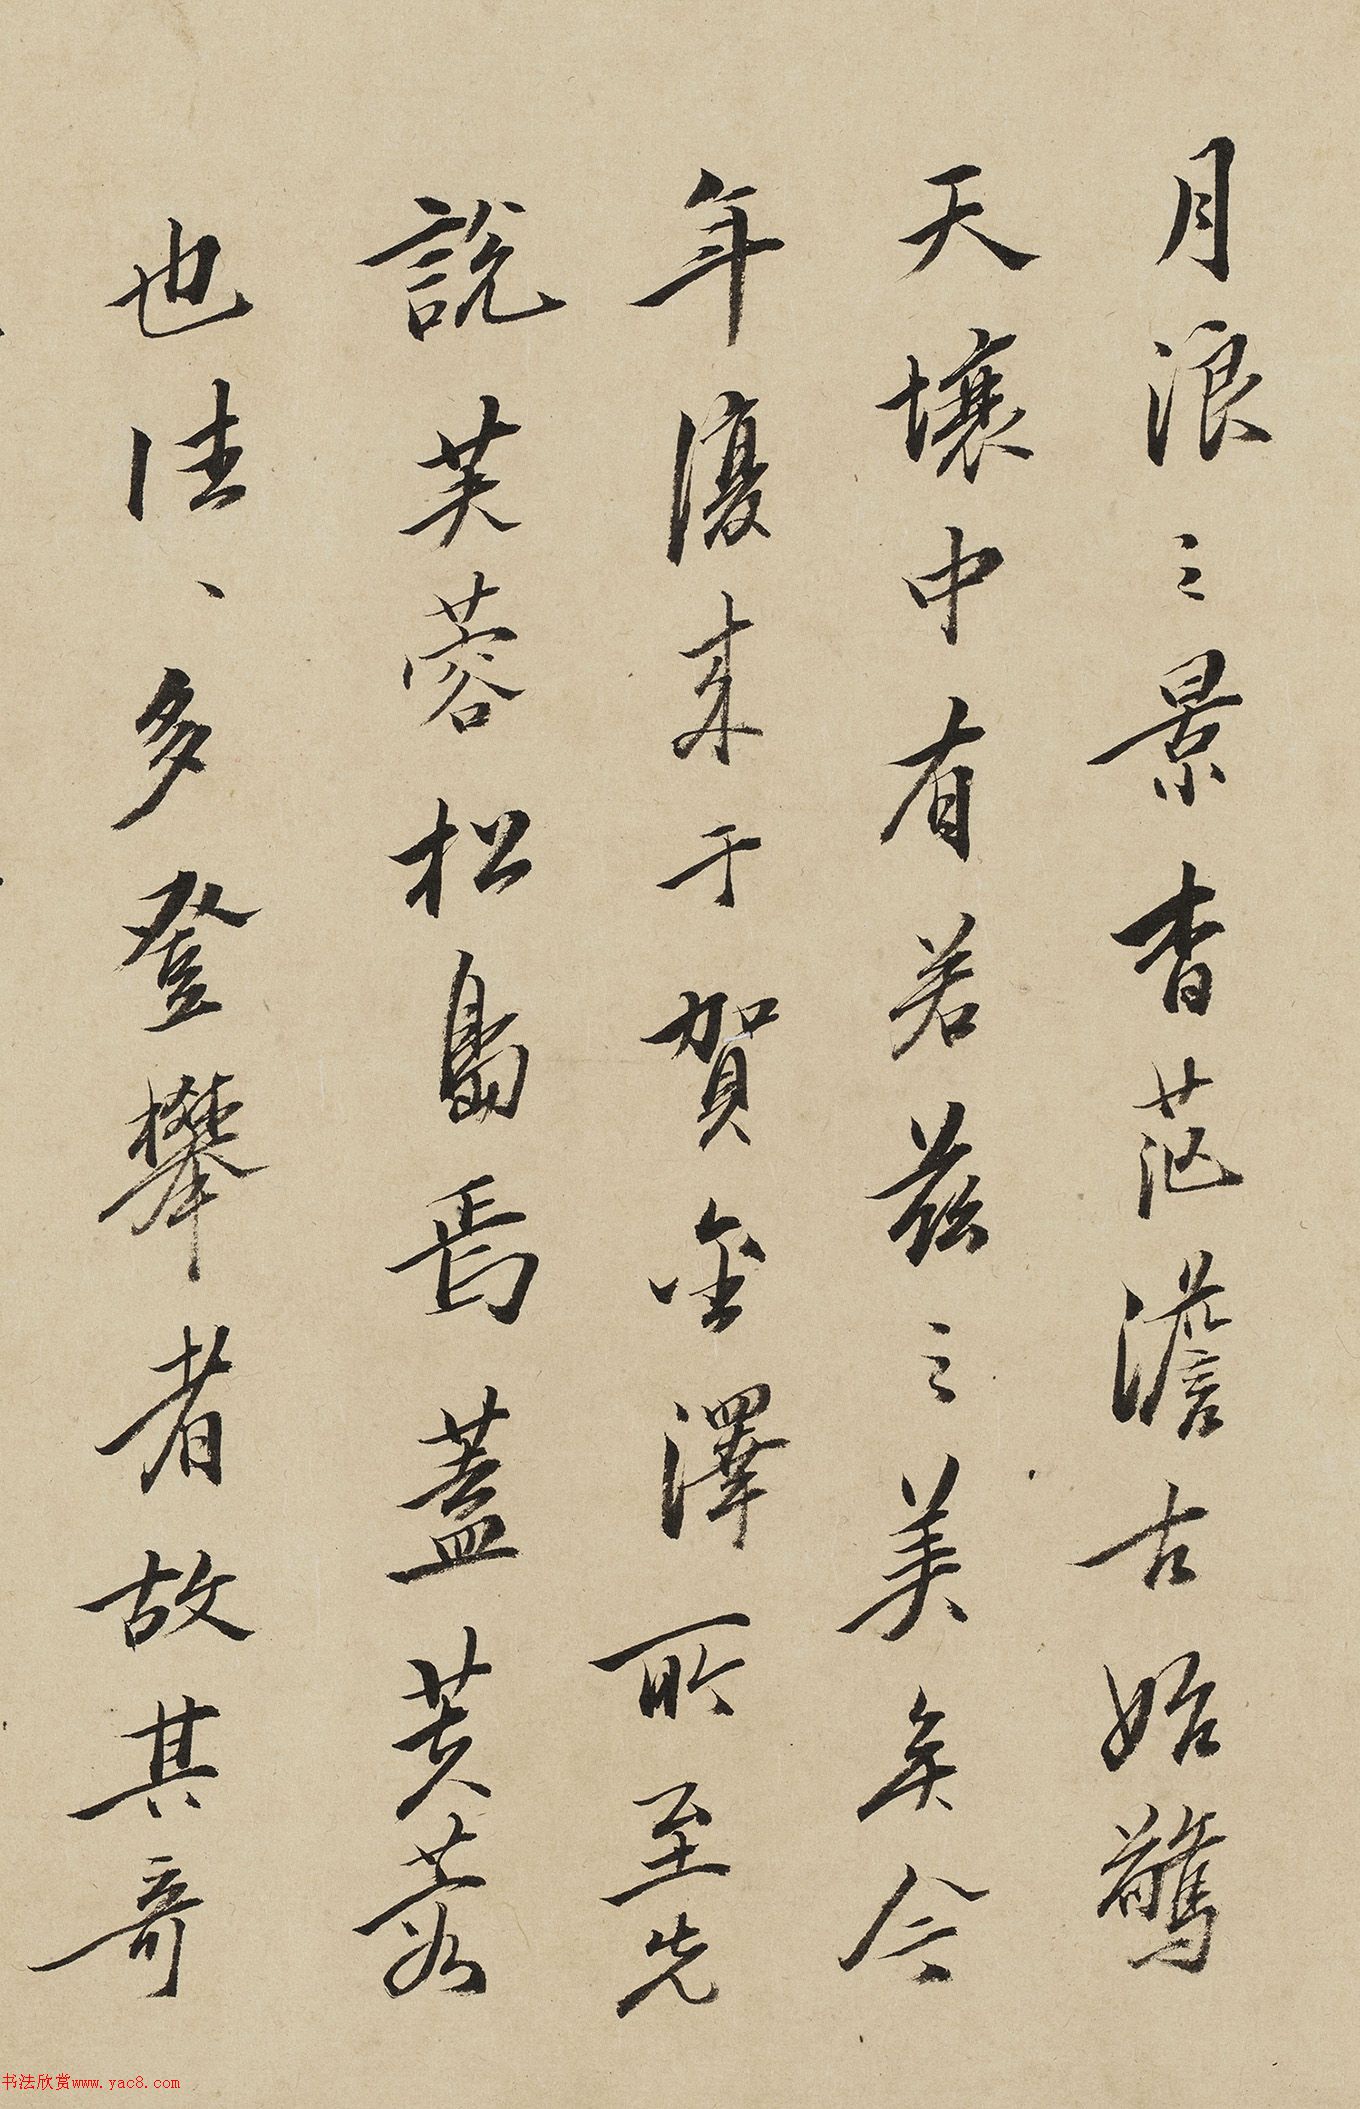 月浪之景杳茫澹古始驚
天壤中有若茲之美矣今
年復来于賀金澤所至先
說芙蓉松島焉蓋芙蓉
也往、多登攀者故其奇
书法欣赏www.yac8.com